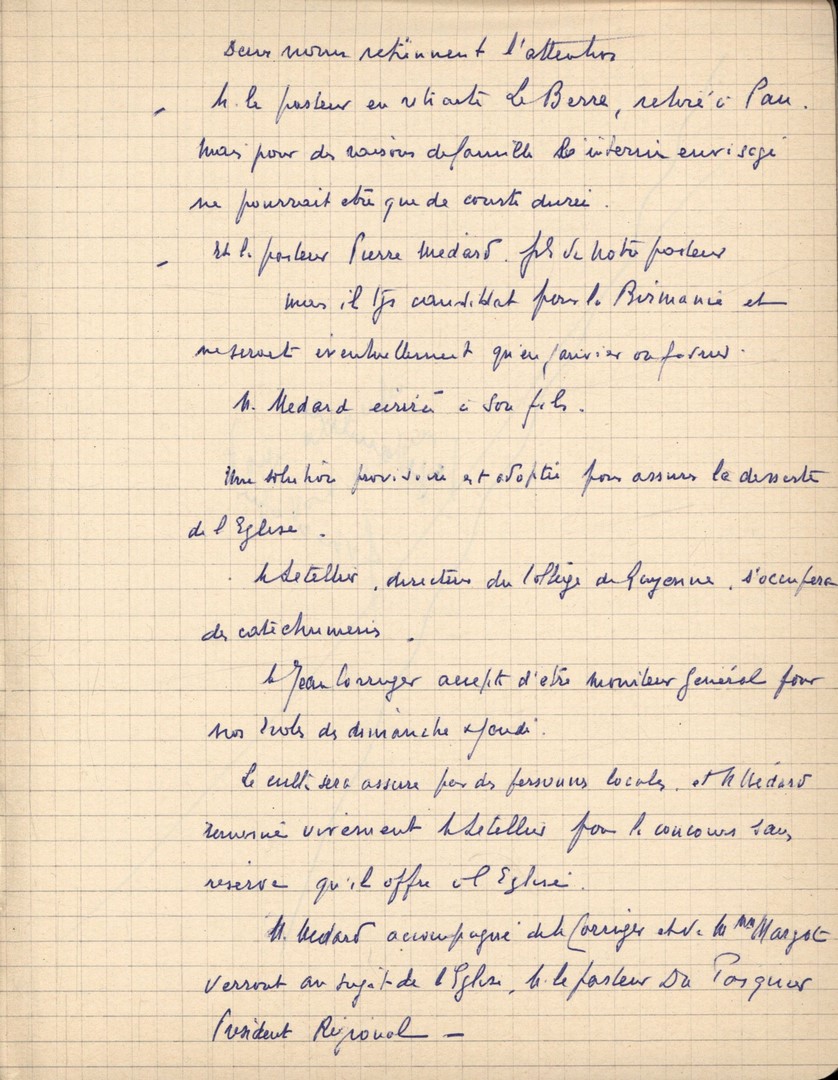 Deux noms retiennent l'attention
- M. le pasteur en retraite Le Berre, retiré à Pau.
Mais pour des raisons de famille l'intérim envisagé
ne pourrait etre que de courte durée.
- Et le pasteur Pierre Medard. fils de notre pasteur
mais il est candidat pour la Birmanie et
ne serait éventuellement qu'en janvier ou février.
M. Medard écrira à son fils.
Une solution provisoire est adoptée pour assurer la desserte
de l'Eglise.
M Letellier, directeur du Collège de Bayonne, s'occupera
des catéchumènes.
M Jean Corriger accepte d'etre moniteur général pour
nos écoles de dimanche & jeudi.
Le culte sera assuré par des personnes locales, et M Médard
remercie vivement M Letellier pour le concours sans
réserve qu'il offre à l'Eglise.
M. Medard accompagné de M Corriger et de M Margot
verront au sujet de l'Eglise, M. le pasteur Du Pasquier
Président Régional -